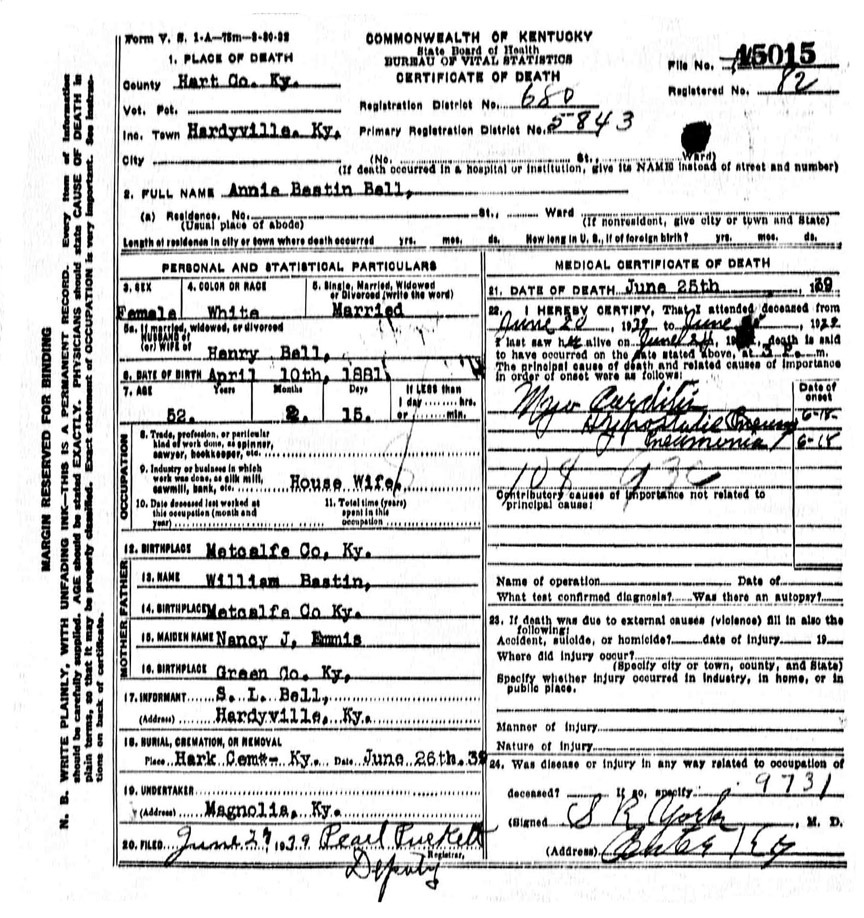 Form V. S. 1-A-75m-8-30-32
COMMONWEALTH OF KENTUCKY
State Board of Health
BUREAU OF VITAL STATISTICS
CERTIFICATE OF DEATH
File No. 15015
Registered No. 82
1. PLACE OF DEATH
County Hart Co. Ky.
Vot. Pct.
Registration District No. 680
Inc. Town Hardyville. Ky.
Primary Registration District No. 5843
City (No. St., Ward)
(If death occurred in a hospital or institution, give its NAME instead of street and number)
2. FULL NAME Annie Bastin Bell,
(a) Residence, No. St., Ward
(Usual place of abode) (If nonresident, give city or town and State)
Length of residence in city or town where death occurred yrs. mos. ds. How long in U. S., if of foreign birth? yrs. mos. ds.
PERSONAL AND STATISTICAL PARTICULARS
3. SEX 4. COLOR OR RACE 5. Single, Married, Widowed
or Divorced (write the word)
Female White Married
5a. If married, widowed, or divorced
HUSBAND of
(or) WIFE of Henry Bell,
6. DATE OF BIRTH April 10th, 1881
7. AGE Years Months Days If LESS than
1 day hrs.
or min.
52. 2. 15.
OCCUPATION
8. Trade, profession, or particular
kind of work done, as spinner,
sawyer, bookkeeper, etc.
9. Industry or business in which
work was done, as silk mill,
sawmill, bank, etc. House Wife
10. Date deceased last worked at
this occupation (month and
year)
11. Total time (years)
spent in this
occupation
12. BIRTHPLACE Metcalfe Co, Ky.
FATHER
13. NAME William Bastin,
14. BIRTHPLACE Metcalfe Co Ky.
MOTHER
15. MAIDEN NAME Nancy J, Emmis
16. BIRTHPLACE Green Co. Ky,
17. INFORMANT S. L. Bell,
(Address) Hardyville, Ky.
18. BURIAL, CREMATION, OR REMOVAL
Place Hark Cem Ky. Date June 26th. 39
19. UNDERTAKER
(Address) Magnolia, Ky.
20. FILED June 27 1939 Pearl Puckett
Registrar.
Deputy
MEDICAL CERTIFICATE OF DEATH
21. DATE OF DEATH June 25th 39
22. I HEREBY CERTIFY, That I attended deceased from
June 20, 1939 to June
I last saw h alive on June 24, death is said
to have occurred on the date stated above, at 3 P. m.
The principal cause of death and related causes of importance
in order of onset were as follows:
Date of
onset
Myo Carditis 6-15-
Hypostatic
Pneumonia 6-15
108 93c
Contributory causes of importance not related to
principal cause:
Name of operation Date of
What test confirmed diagnosis? Was there an autopsy?
23. If death was due to external causes (violence) fill in also the
following:
Accident, suicide, or homicide? date of injury 19
Where did injury occur?
(Specify city or town, county, and State)
Specify whether injury occurred in industry, in home, or in
public place.
Manner of injury
Nature of injury
24. Was disease or injury in any way related to occupation of
deceased? If so, specify 9731
(Signed S R York, M. D.
(Address) Ky
MARGIN RESERVED FOR BINDING
N. B. WRITE PLAINLY, WITH UNFADING INK—THIS IS A PERMANENT RECORD. Every item of information
should be carefully supplied. AGE should be stated EXACTLY. PHYSICIANS should state CAUSE OF DEATH in
plain terms, so that it may be properly classified. Exact statement of OCCUPATION is very important. See instruc-
tions on back of certificate.